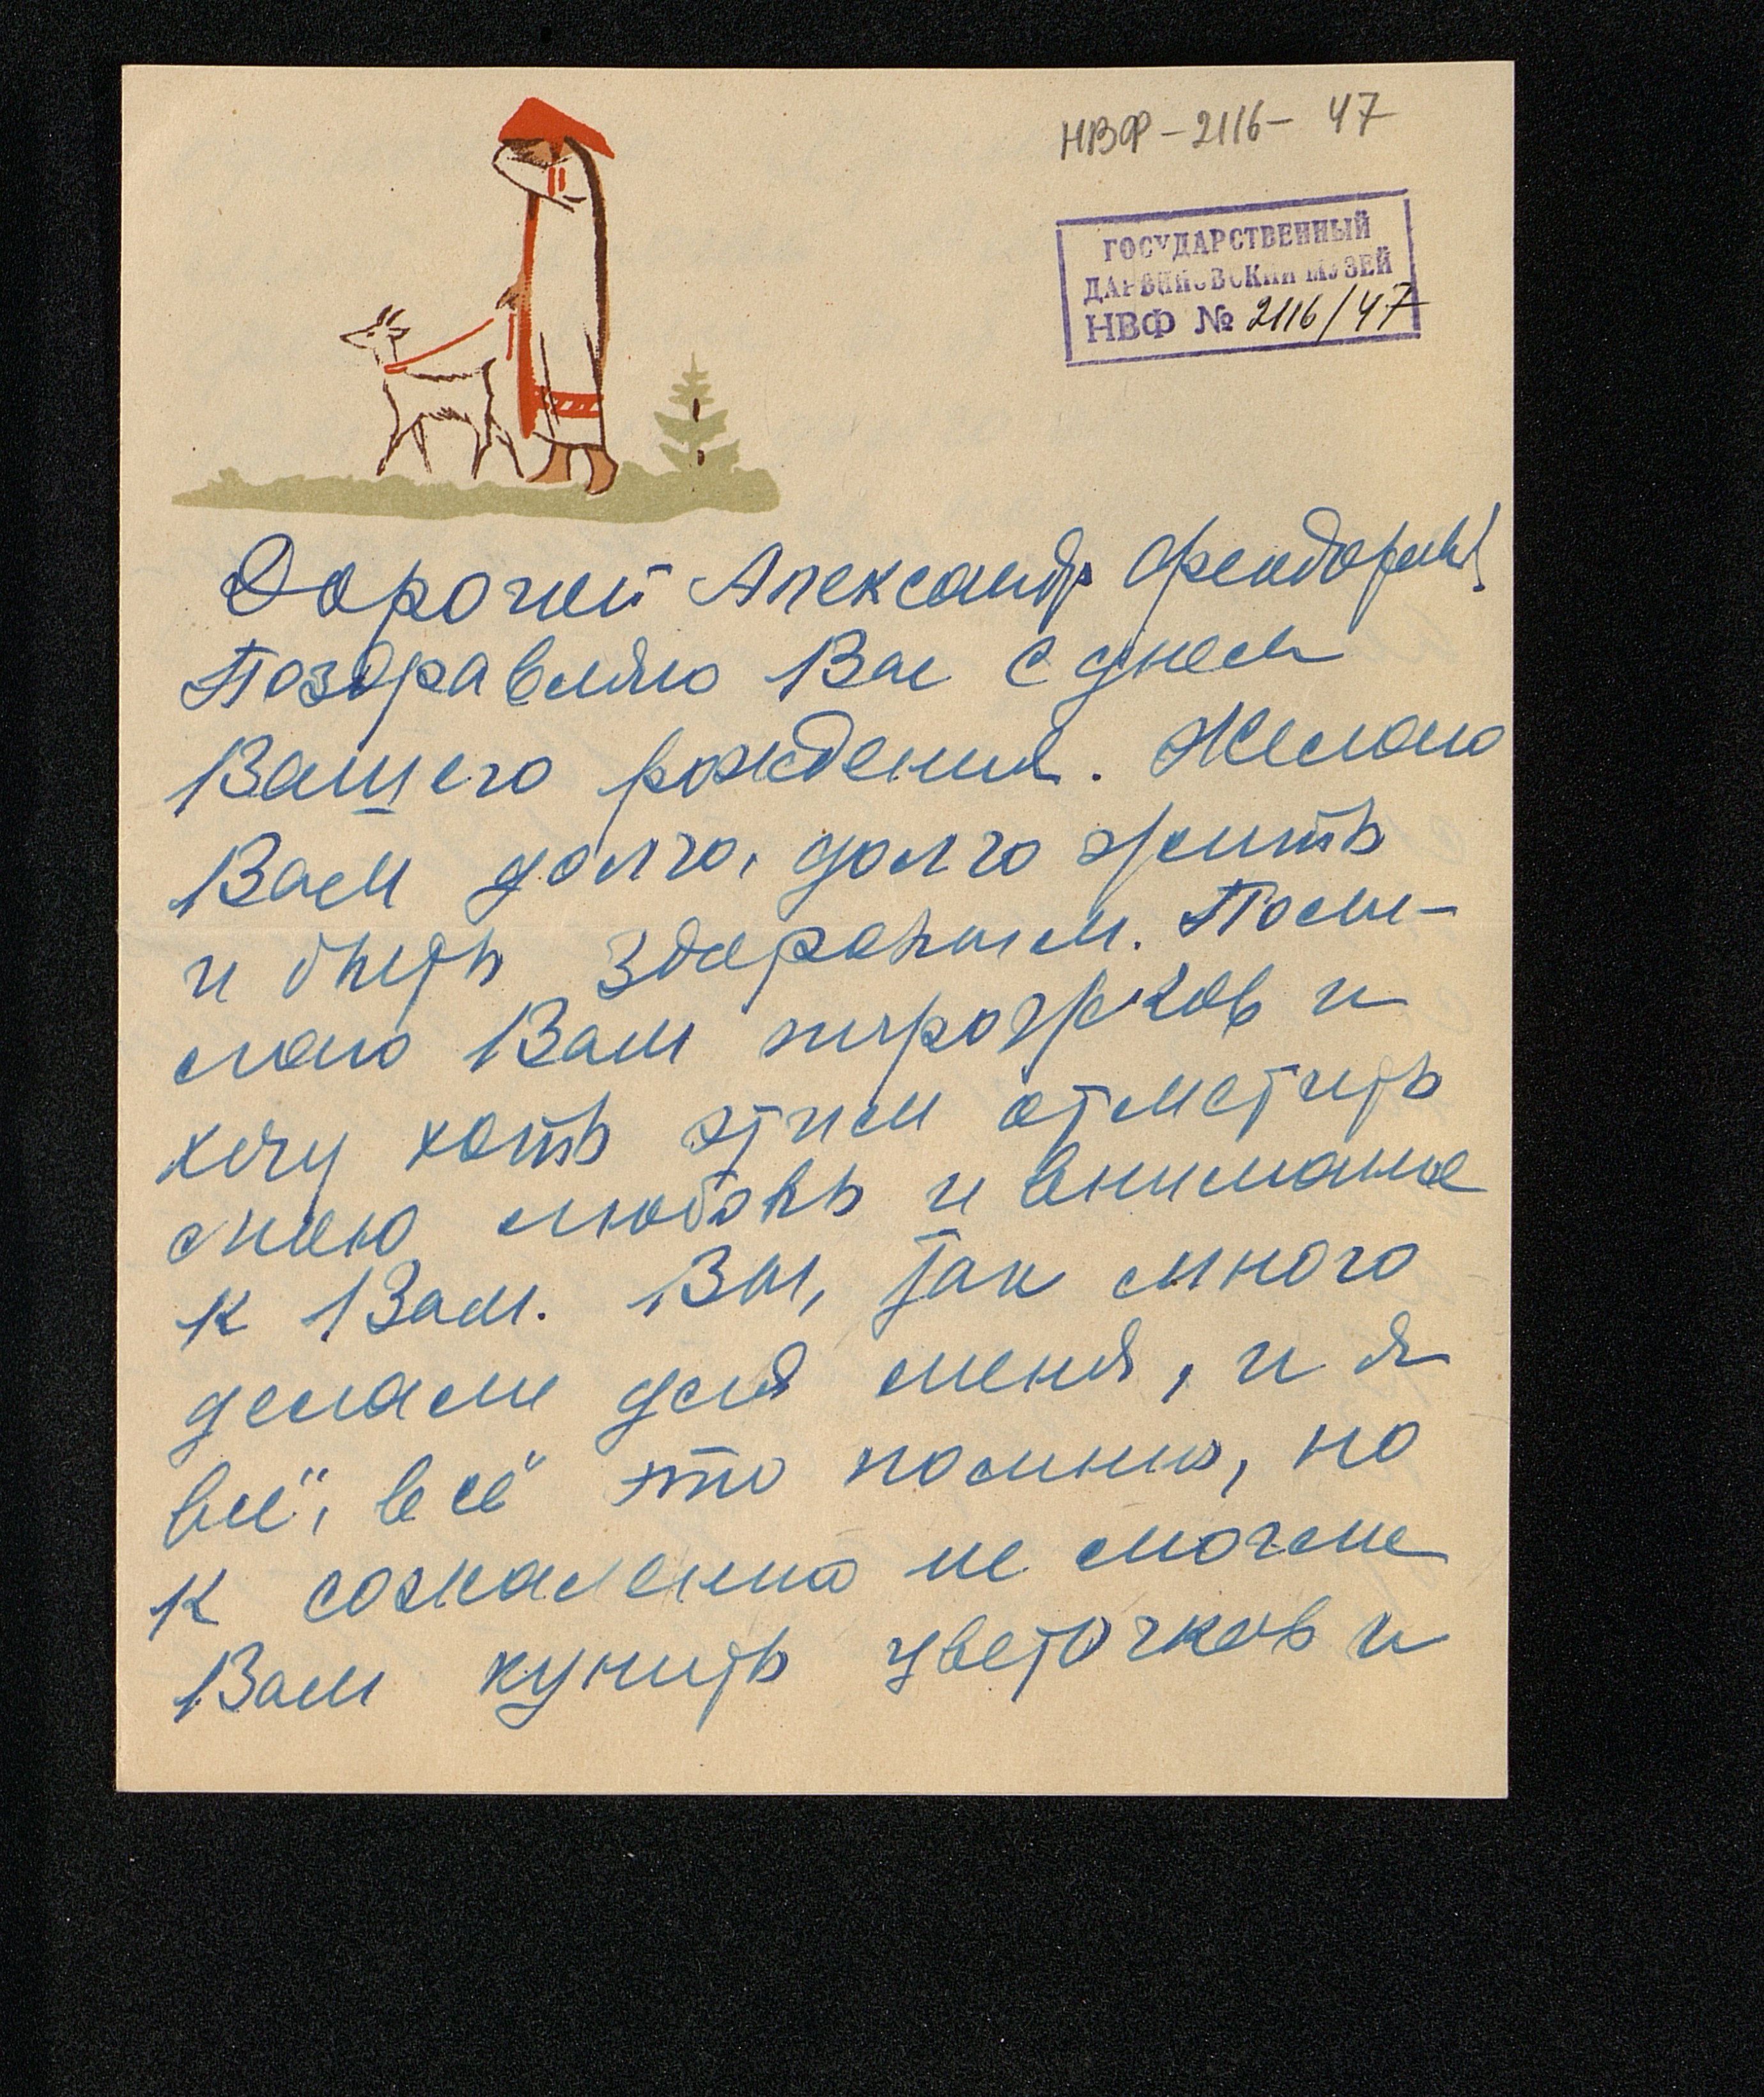 НВФ-2116-47
ГОСУДАРСТВЕННЫЙ
ДАРВИНОВСКИЙ МУЗЕЙ
НВФ № 2116/47
Дорогой Александр Феодорович!
Поздравляю Вас с днем
Вашего рождения. Желаю
Вам долго, долго жить
и быть здоровым. Посы-
лаю Вам пирожков и
хочу хоть этим отметить
свою любовь и внимание
к Вам. Вы, так много
делали для меня, и я
всё, всё это помню, но
к сожалению не могли
Вам купить цветочков и